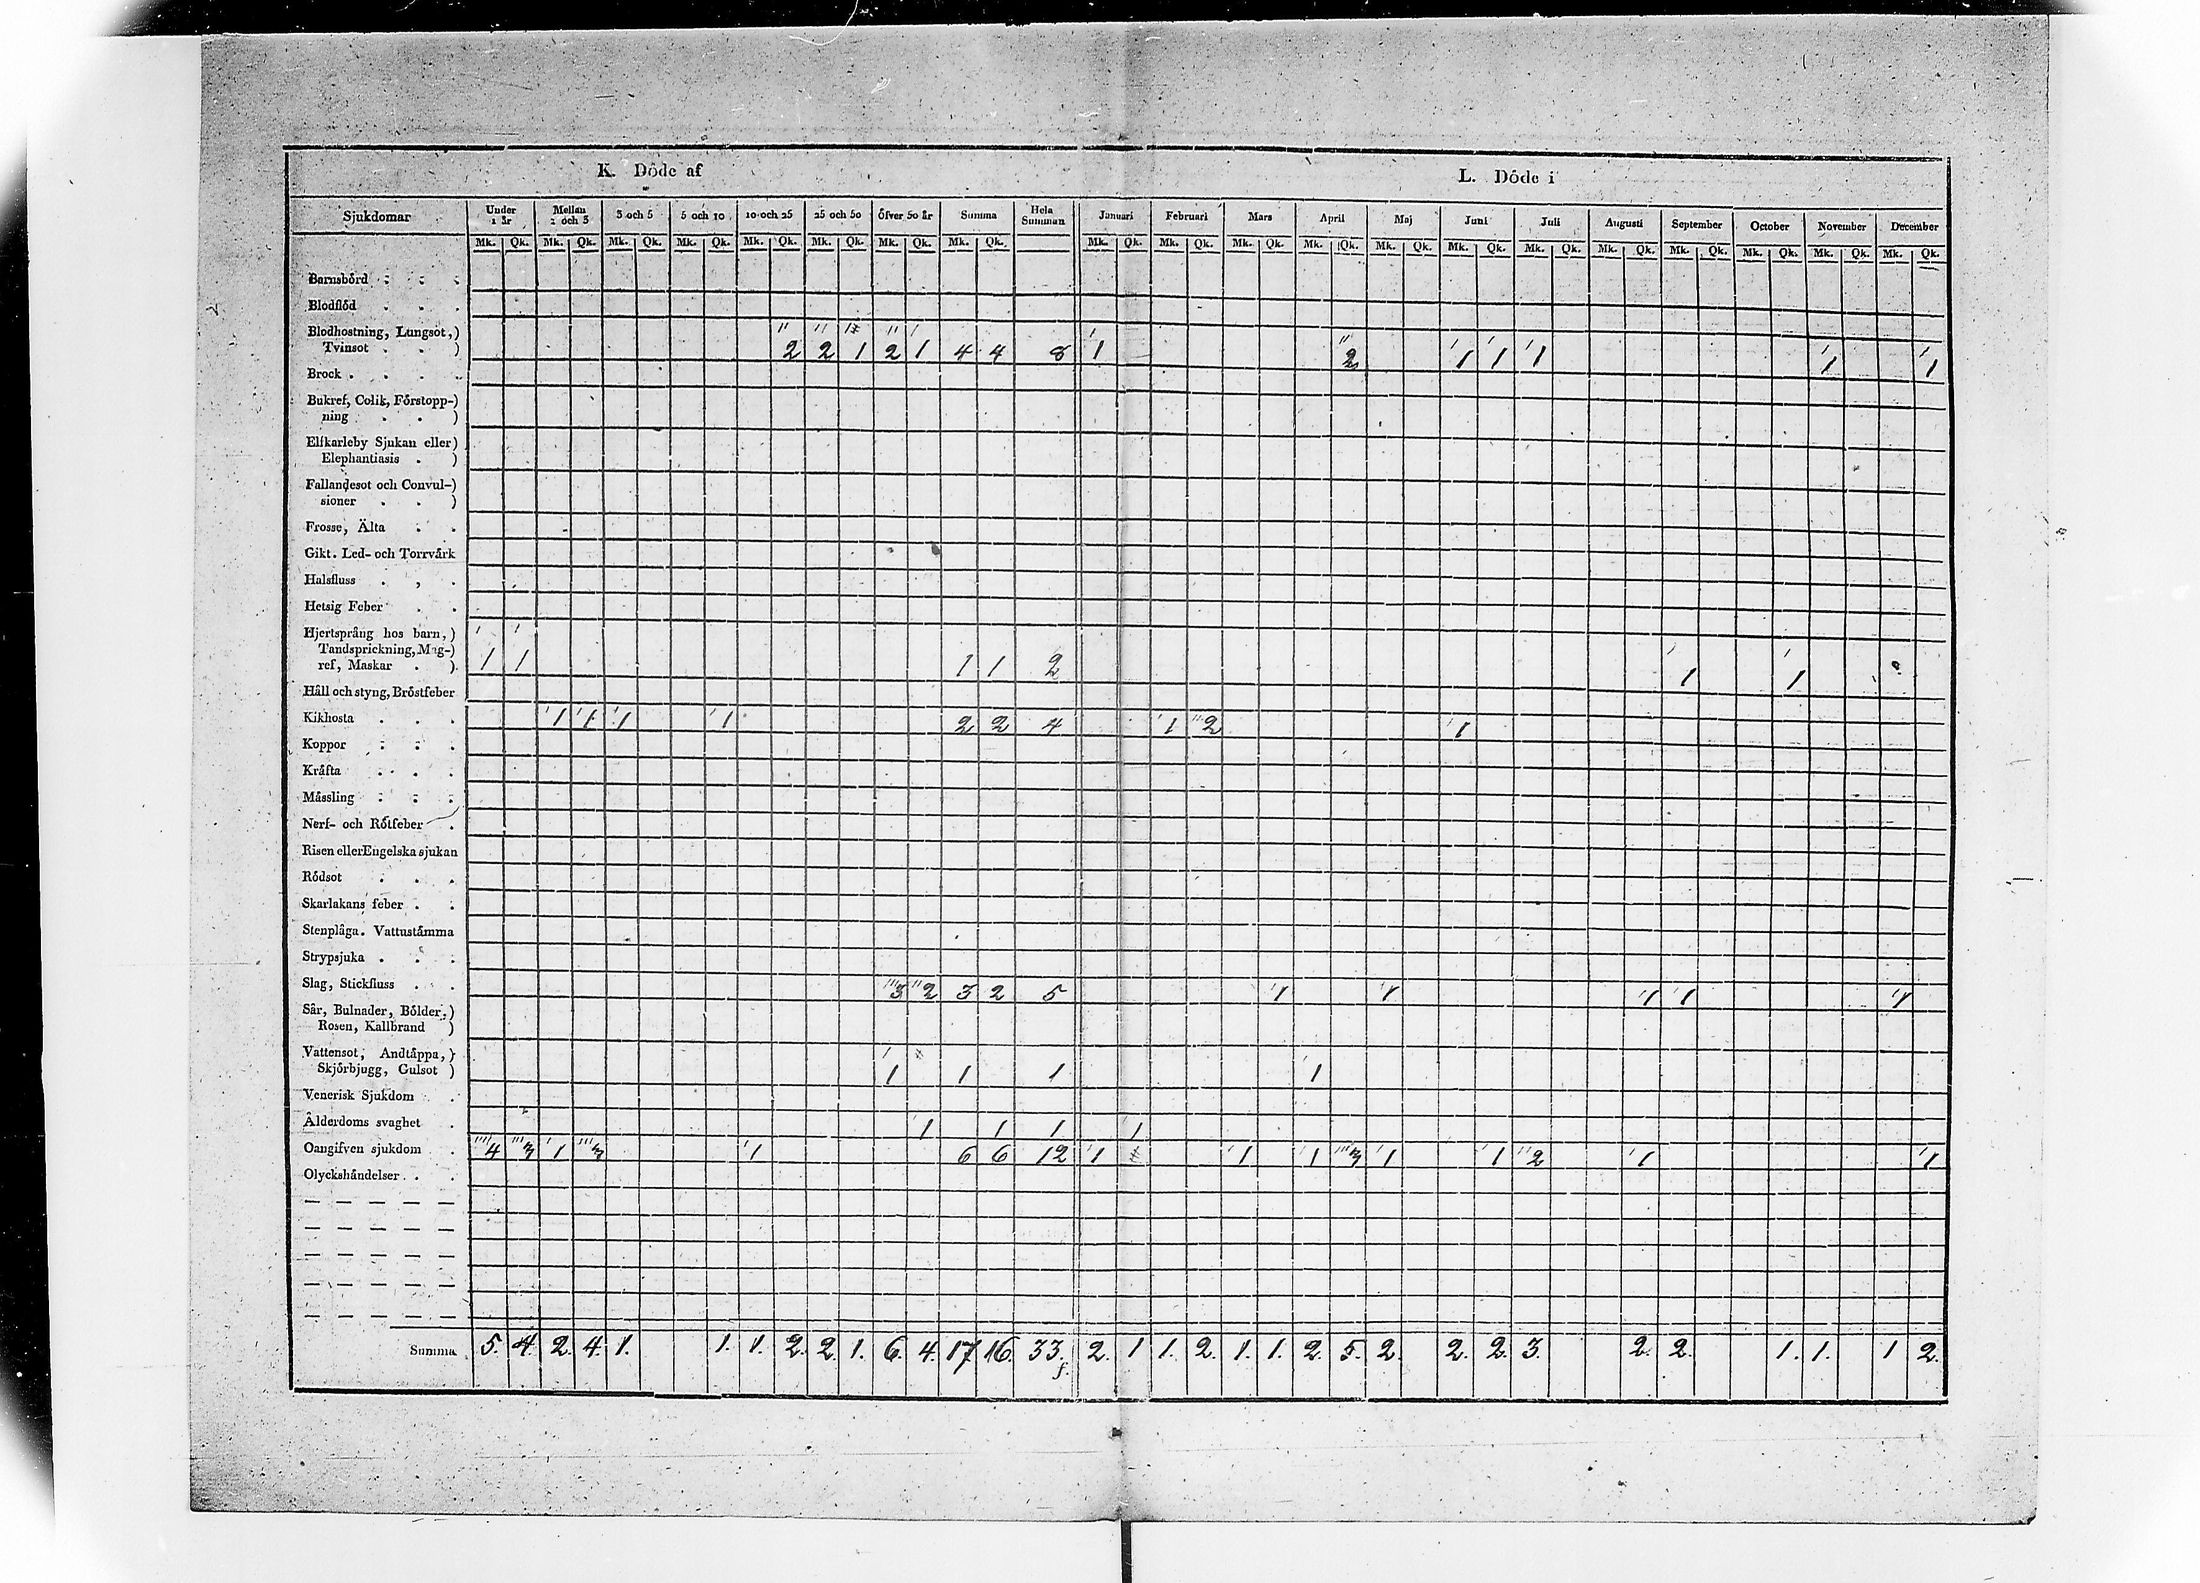 K. Döde af L. Döde i
Sjukdomar Under 1 år Mellan 1 och 3 3 och 5 5 och 10 10 och 25 25 och 50 öfver 50 år Summa Hela Summan Januari Februari Mars April Maj Juni Juli Augusti September October November December
Mk. Qk. Mk. Qk. Mk. Qk. Mk. Qk. Mk. Qk. Mk. Qk. Mk. Qk. Mk. Qk. Mk. Qk. Mk. Qk. Mk. Qk. Mk. Qk. Mk. Qk. Mk. Qk. Mk. Qk. Mk. Qk. Mk. Qk. Mk. Qk. Mk. Qk. Mk. Qk.
Barnsbörd
Blodflöd
Blodhostning, Lungsot,)
Tvinsot . . ) 2 2 1 2 1 4 4 8 1 2 1 1 1 1 1
Brock . . . .
Bukref, Colik, Förstopp-)
ning . . )
Elfkarleby Sjukan eller)
Elephantiasis . )
Fallandesot och Convul-)
sioner . . )
Frosse, Älta . .
Gikt. Led- och Torrvärk
Halsfluss . , .
Hetsig Feber . .
Hjertsprång hos barn, )
Tandsprickning, Mag-)
ref, Maskar . ) 1 1 1 1 2 1 1
Håll och styng, Bröstfeber
Kikhosta . . . 1 1 1 1 2 2 4 1 2 1
Koppor . . .
Kräfta . . . .
Mässling . . .
Nerf- och Rötfeber .
Risen eller Engelska sjukan
Rödsot . . .
Skarlakans feber . .
Stenplåga. Vattustämma
Strypsjuka . . .
Slag, Stickfluss . . 3 2 3 2 5 1 1 1 1 1
Sår, Bulnader, Bölder,)
Rosen, Kallbrand )
Vattensot, Andtäppa, )
Skjörbjugg, Gulsot ) 1 1 1 1
Venerisk Sjukdom .
Ålderdoms svaghet . 1 1 1 1
Oangifven sjukdom . 4 3 1 3 1 6 6 12 1 1 1 3 1 1 2 1 1
Olyckshändelser . . .
Summa 5. 4. 2. 4. 1. 1. 1. 2. 2. 1. 6. 4. 17 16. 33. 2. 1 1. 2. 1. 1. 2. 5. 2. 2. 2. 3. 2. 2. 1. 1. 1 2.